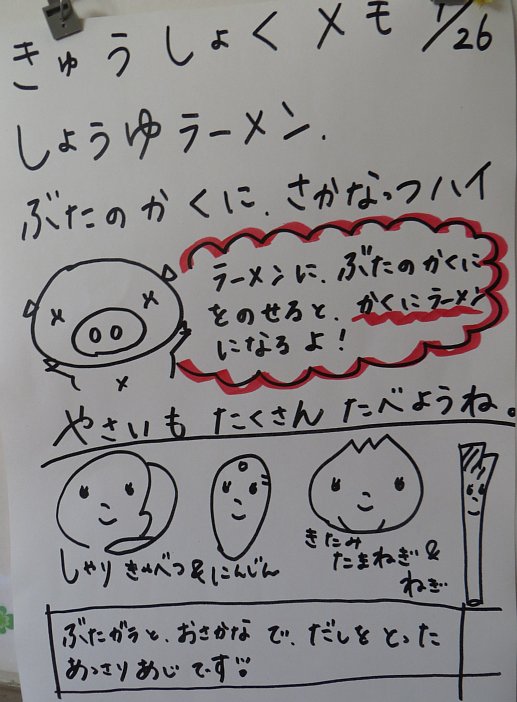 きゅうしょくメモ 1/26
しょうゆラーメン、
ぶたのかくに、さかなっつハイ
ラーメンに、ぶたのかくに
をのせると、かくにラーメン
になるよ!
やさいも たくさん たべようね。
しゃりきゃべつ&にんじん
きたみ
たまねぎ&
ねぎ
ぶたガラと、おさかなで、だしをとった
あっさりあじです